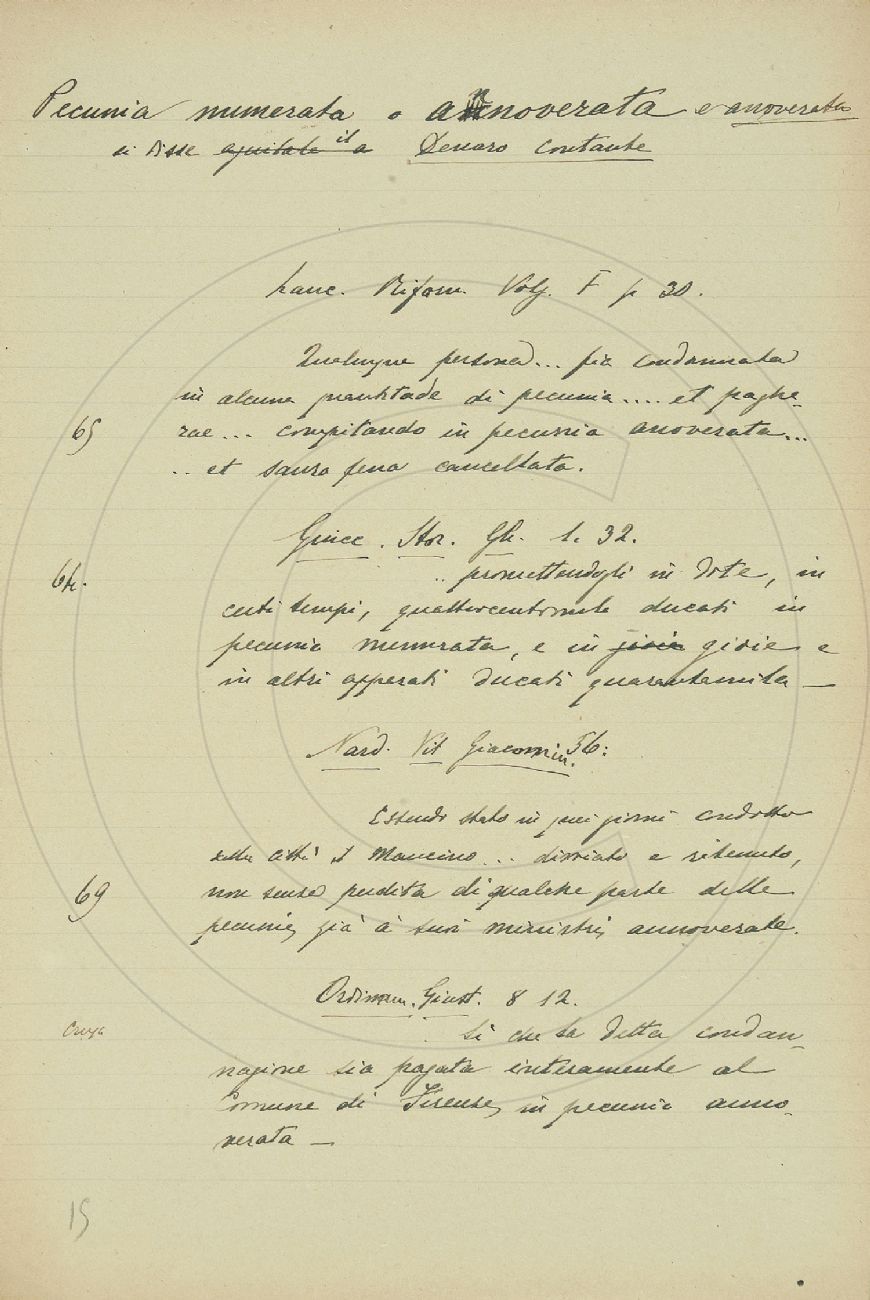 Pecunia numerata o annoverata e anoverata
si disse il Denaro contante
Canc. Riform. Volg. F p 30.
Qualunque persona... fia condannata
in alcuna quantitade di pecunia.... et paghe-
65
rae... compitando in pecunia anoverata...
.. et sanza pena cancellata.
Guicc. Stor. Gh. 1. 32.
64.
.. promettendogli in dote, in
certi tempi, quattrocentomila ducati in
pecunia numerata, e in gioie gioie e
in altri apparati ducati quarantamila —
Nard. Vit Giacomin. 56:
Essendo stato in quei giorni condotto
nella città il Mancino... disviato e ritenuto,
69
non senza perdita di qualche parte delle
pecunie, già a' suoi ministri, annoverate.
Ordinam. Giust. 8 12.
Sì che la detta condan-
nagione sia pagata interamente al
Comune di Firenze, in pecunia anno-
verata —
15